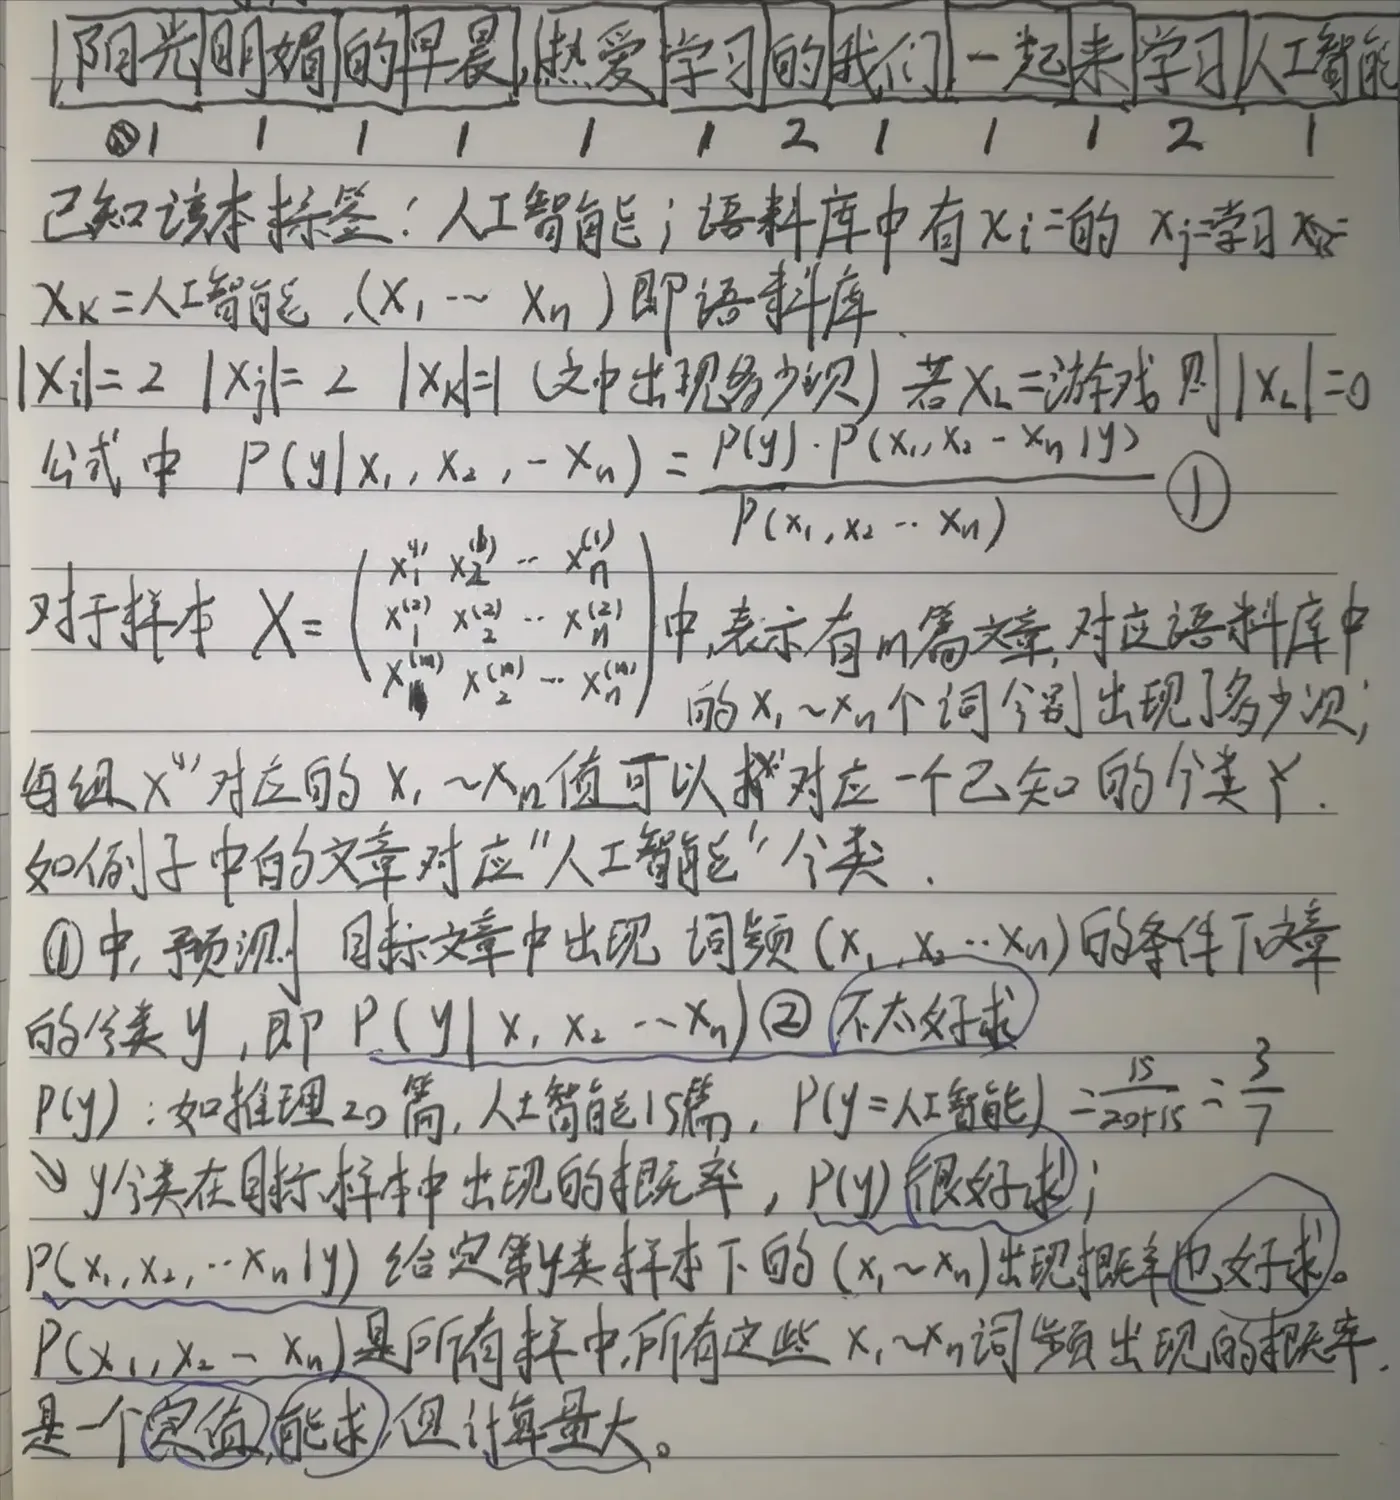 阳光明媚的早晨,热爱学习的我们一起来学习人工智能
1 1 1 1 1 1 2 1 1 1 2 1
已知该本标签:人工智能;语料库中有xi=的 xj=学习
xK=人工智能.(x1…xn)即语料库.
|xi|=2 |xj|=2 |xK|=1(文中出现多少次)若xL=游戏 则|xL|=0
公式中 P(y|x1,x2,-xn)=P(y)·P(x1,x2-xn|y)/P(x1,x2…xn) ①
对于样本 X=(x1(1) x2(1) … xn(1)
x1(2) x2(2) … xn(2)
x1(m) x2(m) … xn(m))中,表示有m篇文章,对应语料库中
的x1~xn个词分别出现了多少次;
每组x(1)对应的x1~xn值可以对应一个已知的分类Y.
如例子中的文章对应"人工智能"分类.
①中,预测 目标文章中出现 词频(x1,x2…xn)的条件下文章
的分类y,即 P(y|x1 x2…xn)② 不太好求
P(y):如推理20篇,人工智能15篇,P(y=人工智能)=15/20+15=3/7
↘y分类在目标样本中出现的概率,P(y)很好求;
P(x1,x2,…xn|y)给定第y类样本下的(x1~xn)出现概率也好求。
P(x1,x2-xn)是所有样中,所有这些x1~xn词频出现的概率.
是一个定值,能求,但计算量大。